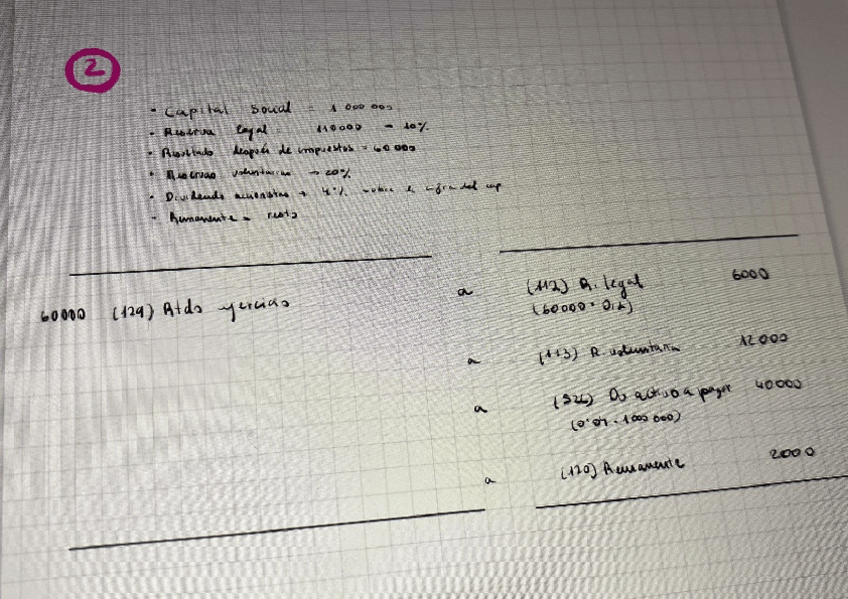 2
- Capital Social = 1 000 000
- Reserva legal = 110000 - 10%
- Resultado después de impuestos = 60 000
- Reservas voluntarias → 20%
- Dividendo accionistas → 4% sobre la cifra del cap
- Remanente = resto
60000 (129) Rtdo ejercicio a (112) R. legal 6000
(60000 · 0,1)
a (113) R. voluntaria 12000
a (526) Div activo a pagar 40000
(0'04 · 1000 000)
a (120) Remanente 2000